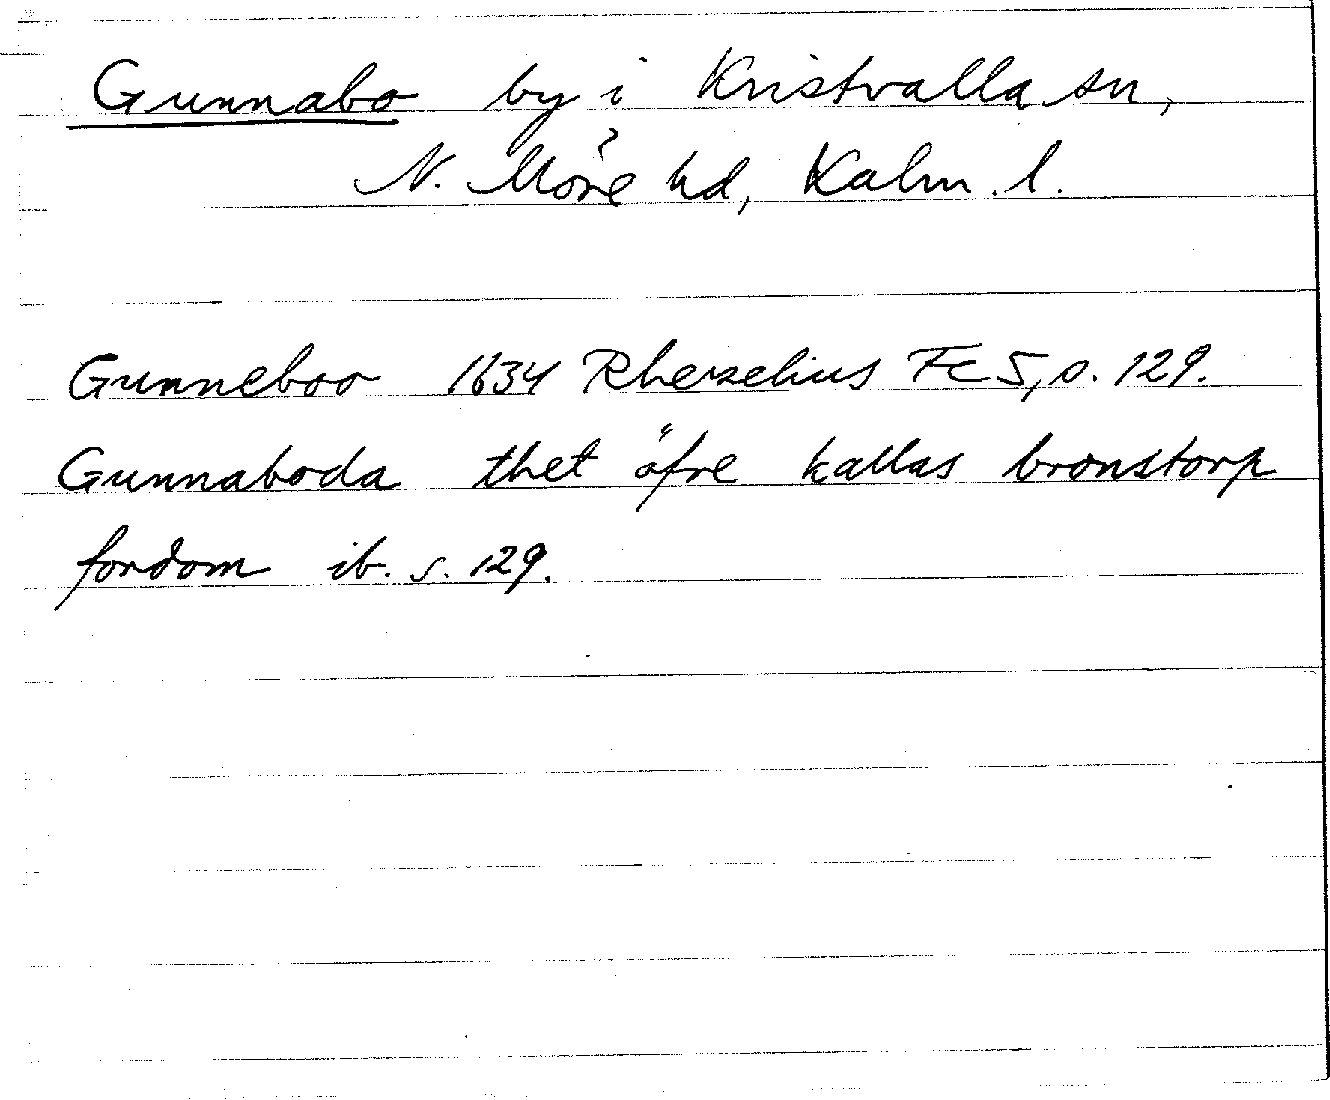 Gunnabo by i Kristvalla sn,
N. Möre hd, Kalm. l.
Gunneboo 1634 Rhezelius Fc 5, s. 129.
Gunnaboda thet öfre kallas bronstorp
fordom ib. s. 129.